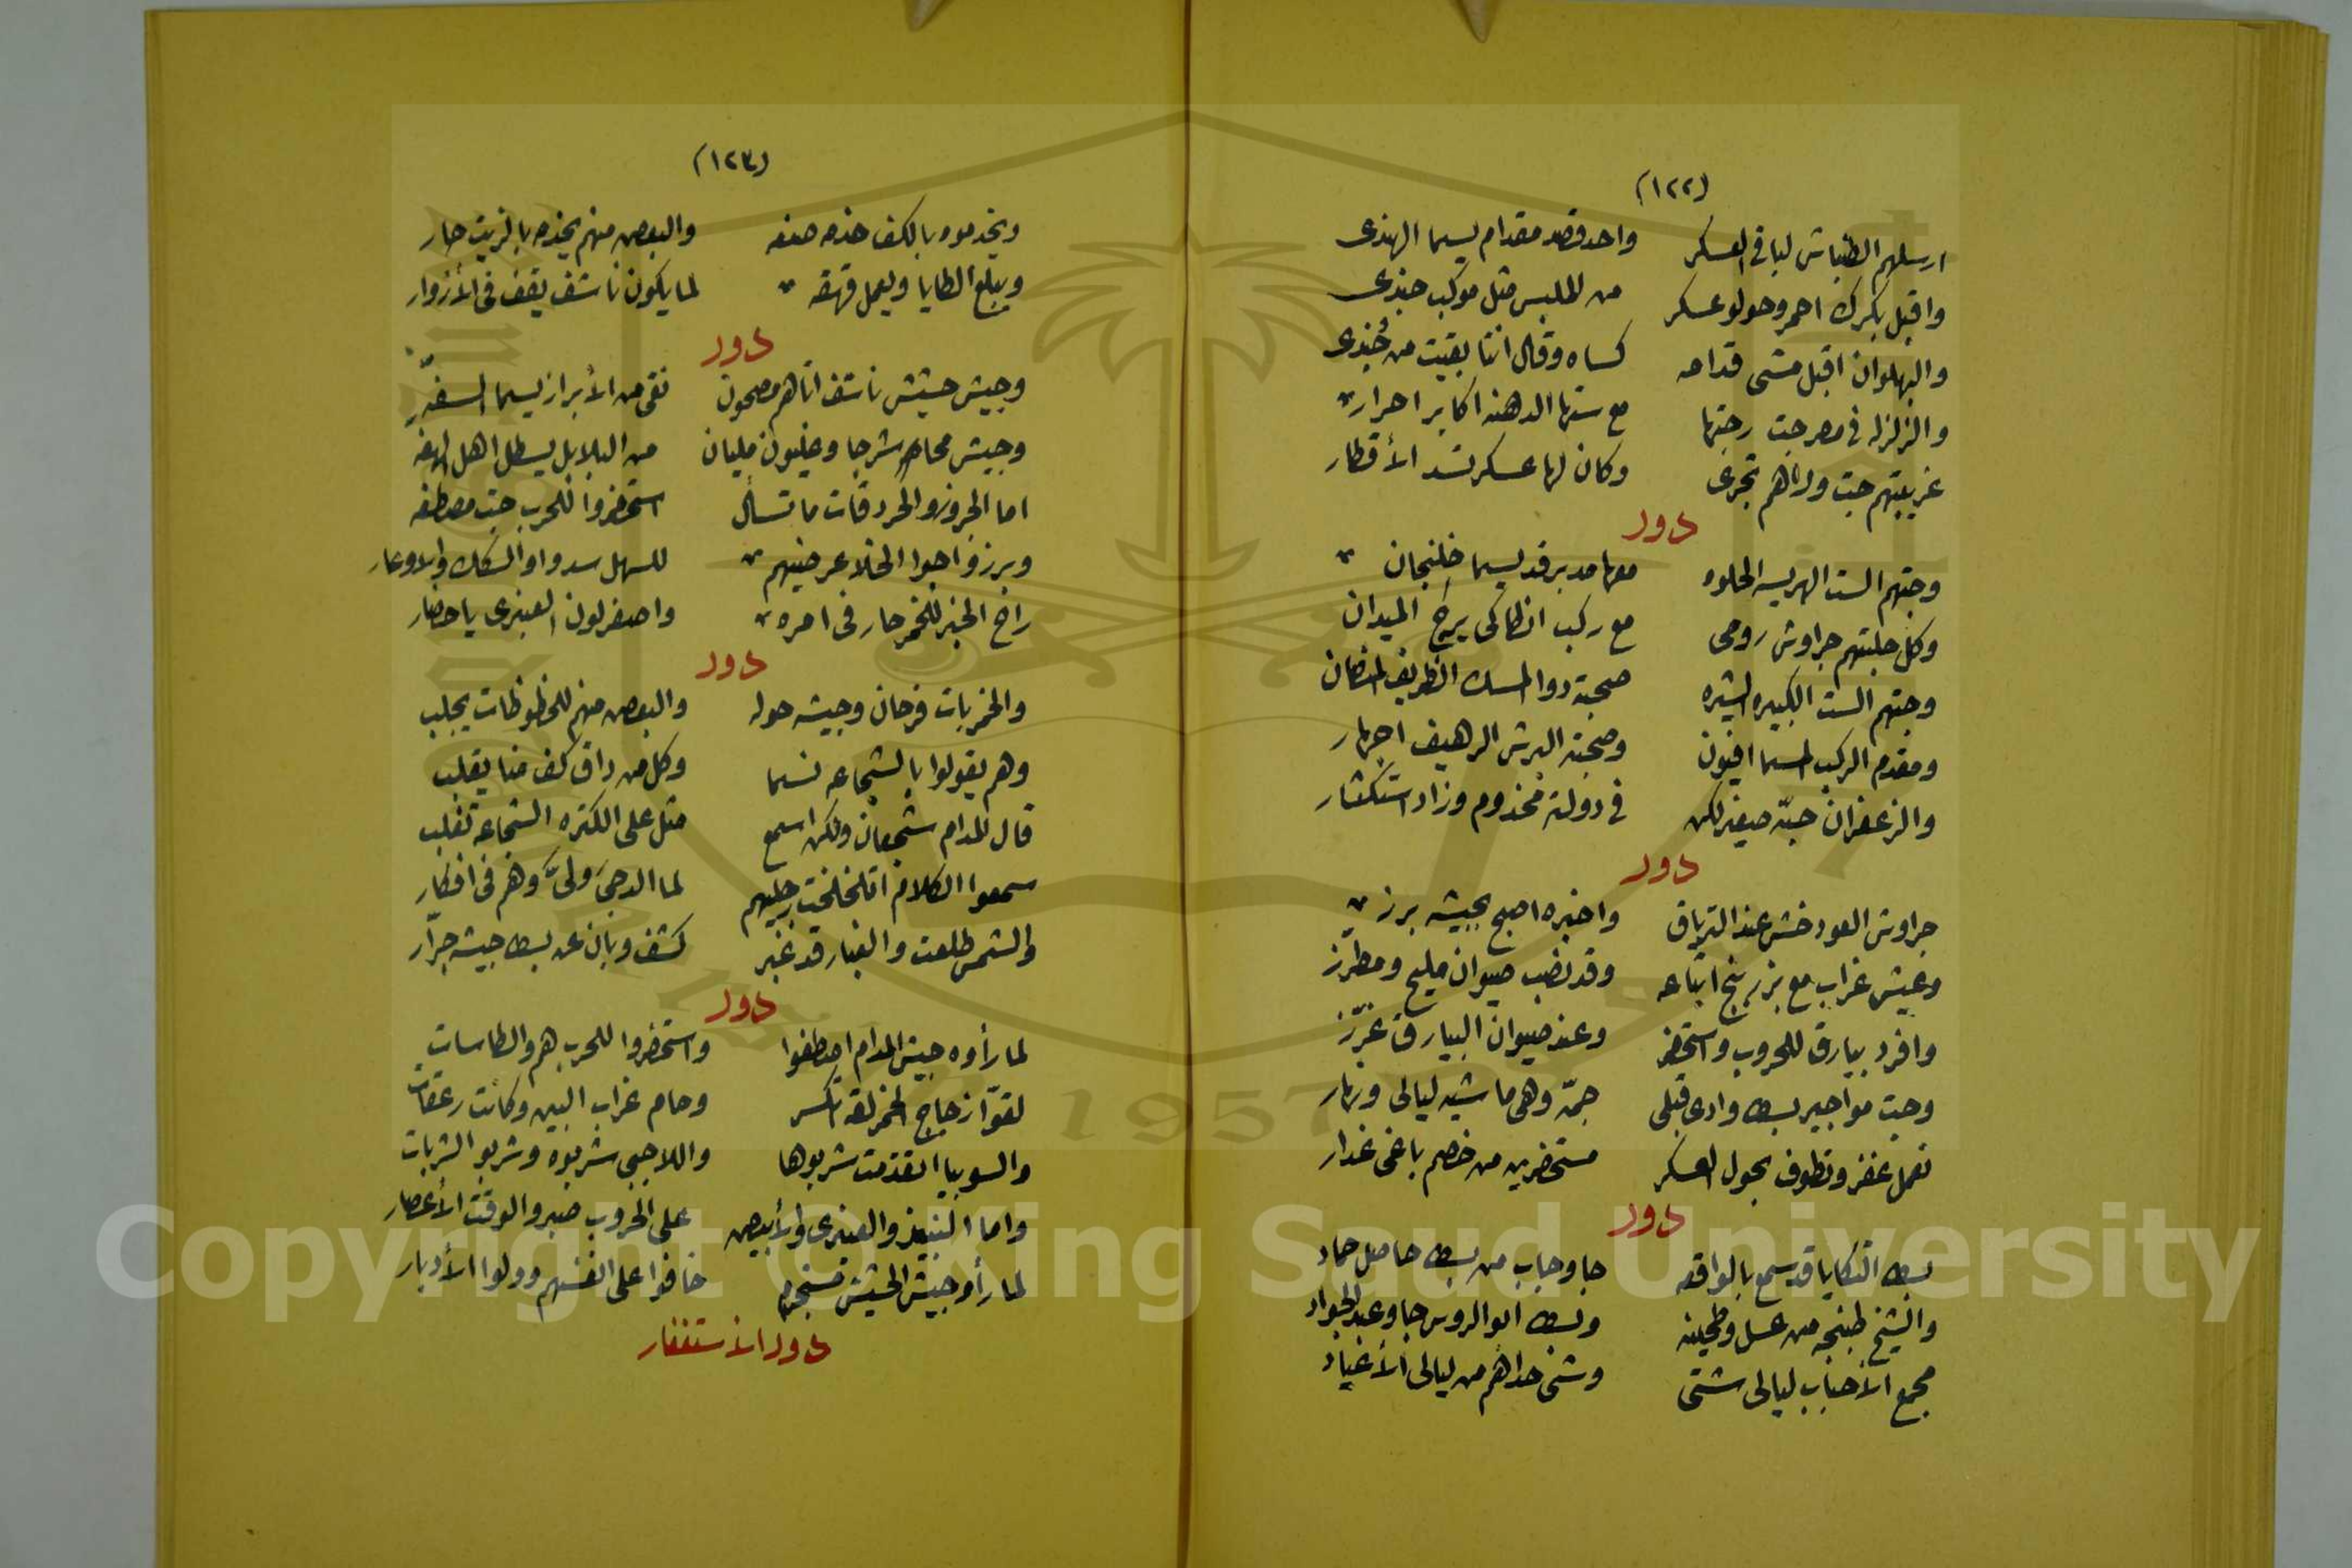 (١٢٢)
ارسلهم الطباش لباقى العسكر واحد قصد مقدام يسما الهندى
واقبل بكرك احمر وحولو عسكر من الملبس مثل موكب جندى
والبهلوان اقبل مشى قدامه كساه وقال انتا بقيت من جندى
والزلزله فى مصر جت رجتها مع ستها الدهنه اكابر احرار
جت وراهم تجرى وكان لها عسكر تسد الأقطار
دور
وجتهم الست الهريسه الحلوه معها مدبر قد يسما خلنجان
وكل جلبتهم جراوش رومى مع ركب انطاكى يرج الميدان
وجتهم الست الكبيره صحبة دوا المسك الظريف
ومقدم الركب المسما افيون وصحبته البرش الرهيف اجهار
والزعفران جبه صغير لكن فى دولة مخدوم وزاد استكثار
دور
جراوش العود خش عند الترياق واخبره اصبح بجيشه برز
وعيش غراب مع بزر بنج اتباعه وقد نصب صيوان مليح ومطرز
وافرد بيارق للحروب واستحضر وعند صيوان البيارق غرّز
وجت مواجير بسط وادى قبلى جمّه وهى ماشيه ليالى ونهار
تعمل غفر وتطوف بحول العسكر مستحضرين من خصم باغى غدار
دور
بسط التكايا قد سمع بالواقعه جا وجاب من بسط حاصل حماد
والشيخ طبنجه من عسل وطحينه وبسط ابو الروس جا وعبد الجواد
مجمع الأحباب ليالى شتى وشى حداهم من ليالى الأعياد
(١٢٣)
ويخدموه بالكف خدمه صنعه والبعض منهم يخدم بالزيت حار
ويبلع الطايا ويعمل قهقه لما يكون ناشف يقف فى الأزوار
دور
وجيش حشيش ناشف اتاهم مصحون نقى من الأبزار يسما السفه
وجيش شرجا وغليون مليان من البلابل يسطل اهل
اما الجروز والحردقات ما تسأل استحضروا للحرب جت مصطفه
وبرزوا جوا الخلا عرضيهم للسهل سدوا والسكك والاوعار
راح الخبر للخمر حار فى امره واصفر لون العنبرى يا حضار
دور
والخمر بات فرحان وجيشه حوله والبعض منهم للحظوظات يجلب
وهم يقولوا بالشجاعه نسما وكل من داق كف منا يقلب
قال المدام شجعان ولكن اسمع مثل على الكتره الشجاعه تغلب
سمعوا الكلام اتلخلخت رجليهم لما الدجى ولىّ وهم فى افكار
والشمس طلعت والغبار قد غبر كشف وبان عن بسط جيشه جرّار
دور
لما رأوه جيش المدام اصطفوا واستحضروا للحرب هم والطاسات
لقوّا زجاج الخمر لقه اتكسر وحام غراب البين وكانت زعقات
والسوبيا اتقدمت شربوها واللاجبى شربوه وشربو الشربات
واما النبيذ والعنبرى والأبيض على الحروب صبروا لوقت الأعصار
لما رأو جيش الحشيش خافوا على انفسهم وولوا الأدبار
دور الأستغفار